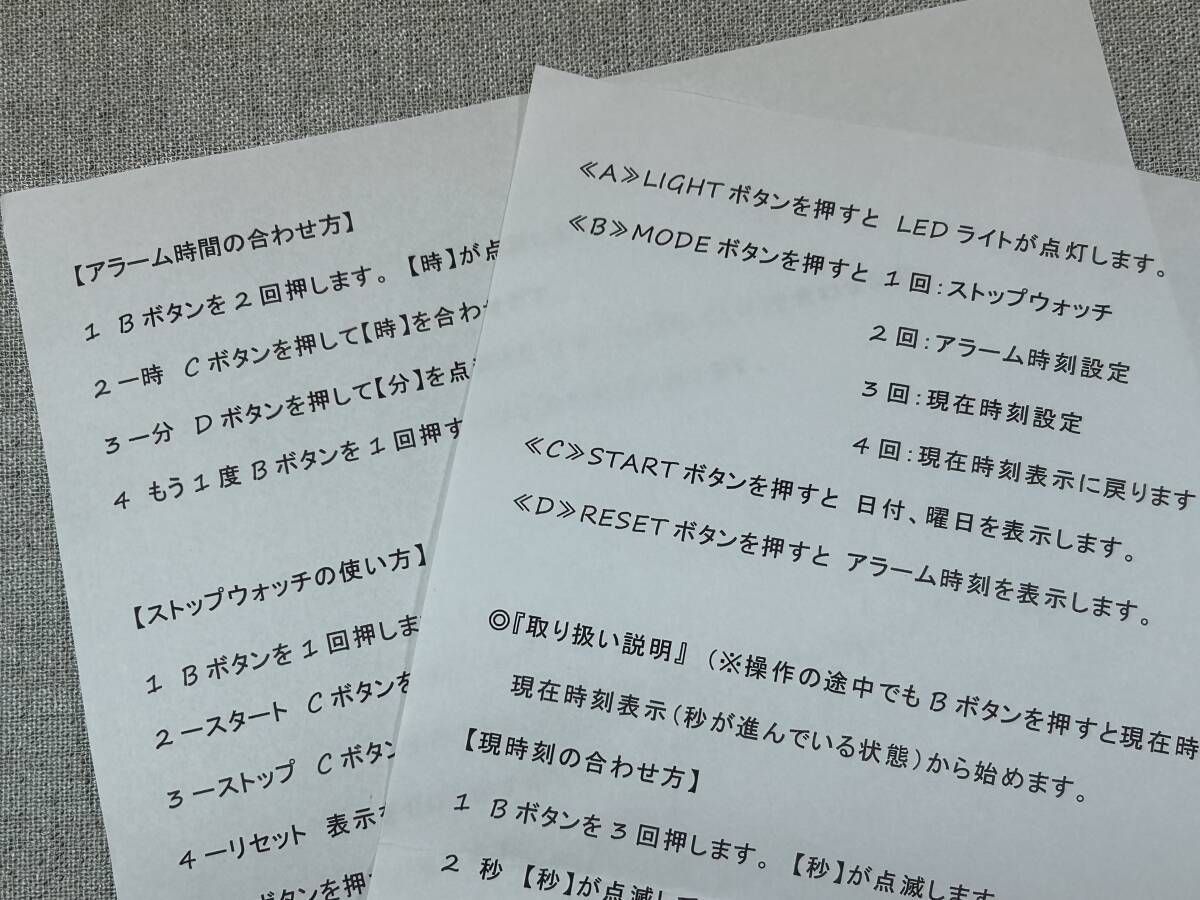 【アラーム時間の合わせ方】
1 Bボタンを2回押します。【時】が点
2―時 Cボタンを押して【時】を合わせ
3―分 Dボタンを押して【分】を点
4 もう1度Bボタンを1回押す
【ストップウォッチの使い方】
1 Bボタンを1回押しま
2―スタート Cボタンを
3―ストップ Cボタン
4―リセット 表示
ボタンを押
≪A≫LIGHTボタンを押すと LEDライトが点灯します。
≪B≫MODEボタンを押すと 1回:ストップウォッチ
2回:アラーム時刻設定
3回:現在時刻設定
4回:現在時刻表示に戻ります
≪C≫STARTボタンを押すと 日付、曜日を表示します。
≪D≫RESETボタンを押すと アラーム時刻を表示します。
◎『取り扱い説明』(※操作の途中でもBボタンを押すと現在時
現在時刻表示(秒が進んでいる状態)から始めます。
【現時刻の合わせ方】
1 Bボタンを3回押します。【秒】が点滅します
2 秒 【秒】が点滅して